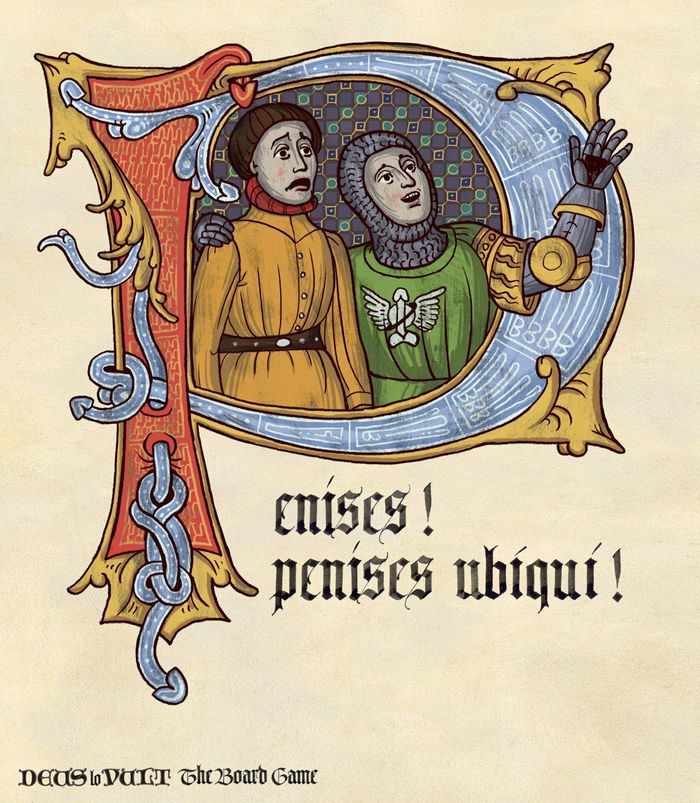 P
enises!
penises ubiqui!
BBBB
BBBB
DEUS lo VULT The Board Game